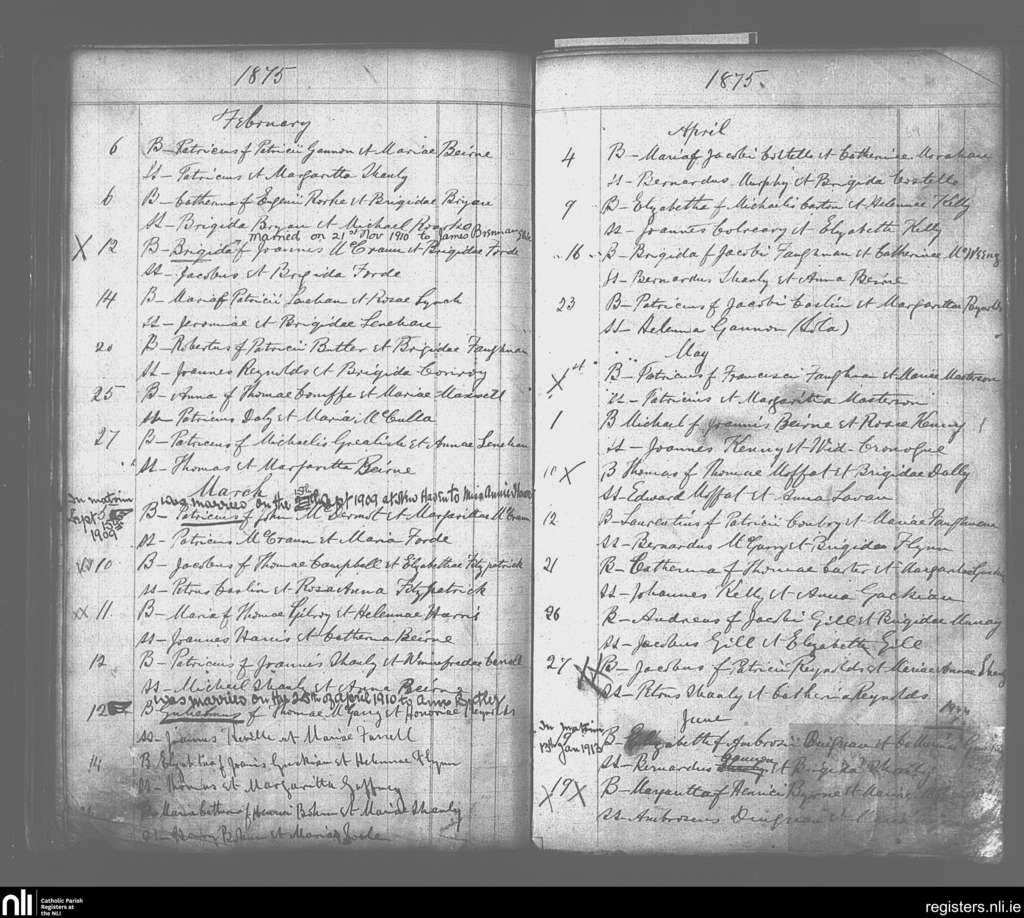 1875
February
6 B - Patricus f Patricii Gannon et Mariae Beirne
ss - Patricus et Margaritta Shanly
6 B - Catherina f Eugenii Rorke et Brigidae Bryan
ss - Brigida Bryan et Michael Roarke
married on 21st Nov 1910 to James Brennan
X 12 B - Brigida f Joannes McCrann et Brigidae Forde
ss - Jacobus et Brigida Forde
14 B - Maria f Patricii Lachan et Rosae Lynch
ss - Jeromiae et Brigidae Lenehan
20 B - Robertus f Patricii Butler et Brigidae Faughnan
ss - Joannes Reynolds et Brigida Conroy
25 B - Anna f Thomae et Mariae Maxwell
ss - Patricus Daly et Maria McCulla
27 B - Patricus f Michaelis Grealish et Annae Lenehan
ss - Thomas et Margaritta Beirne
March
was married on the 15th Sept 1909 at New Haven to Miss Annie
In matrim Sept 15th 1909
B - Patricius f John McDermot et Margarittae McCrann
ss - Patricus McCrann et Maria Forde
10 B - Jacobus f Thomae Campbell et Elizabethae Fitzpatrick
ss - Petrus Carlin et RosaAnna Fitzpatrick
XX 11 B - Maria f Thomae Gilroy et Helennae Harris
ss - Joannes Harris et Catherina Beirne
12 B - Patricus f Joannis Shanly et Winnefridae Carroll
ss - Micheil Shanly et Anna Beirne
was married on the 25th of april 1910 to Anne
12 B - Gulielmus f Thomae McGarry et Honoriae Reynolds
ss - Joannes et Mariae Farrell
14 B Elizabetha f Joanis Guckian et Helennae Flynn
ss - Thomas et Margaritta Geffney
B - Maria f Henrici Bohan et Mariae Shanly
ss - Henry Bohan et Maria Forde
1875.
April
4 B - Maria f Jacobi Costello et Catherinae Morahan
ss - Bernardus Murphy et Brigida Costello
9 B - Elizabetha f Michaelis Carlon et Helennae Kelly
ss - Joannes Colreavy et Elizabeth Kelly
16 B - Brigida f Jacobi Faughnan et Catherinae
ss - Bernardus Shanly et Anna Beirne
23 B - Patricus f Jacobi Carlin et Margarittae Reynolds
ss - Helenna Gannon (Sola)
May
X 1st B - Patricus f Francisci Faughnan et Mariae Masterson
ss - Patricius et Margaritta Masterson
1 B Michael f Joannis Beirne et Rosae Kenny
ss - Joannes Kenny et Wid - Cronogue
10 X B Thomas f Thomae Moffat et Brigidae Dally
ss Edward Moffat et Anna Lavan
12 B - Laurentius f Patricii Conboy et Mariae Faughnan
ss - Bernardus McGarry et Brigida Flynn
21 B - Catherina f Thomae Carter et Margaritta
ss - Johannes Kelly et Anna Guckian
26 B - Andreas f Jacobi Gill et Brigidae
ss - Jacobus Gill et Elizabetta Gill
27 B - Jacobus f Patricii Reynolds et Mariae Annae Shanly
ss - Petrus Shanly et Catherina Reynolds
June
In matrim 13th Jan 1913
B - Elizabetha f Ambrosii Duignan et Catherinae
ss - Bernardus Gannon et Brigida Shanly
X 19 X B - Margaritta f Henrici Byrne et Mariae
ss - Ambrosius Duignan et
nli
Catholic Parish
Registers at
the NLI
registers.nli.ie